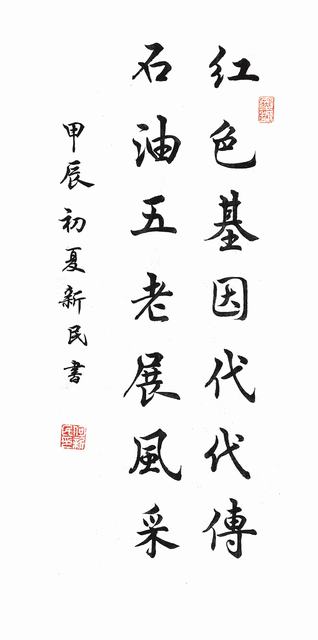 红色基因代代傳
石油五老展風采
甲辰初夏新民書